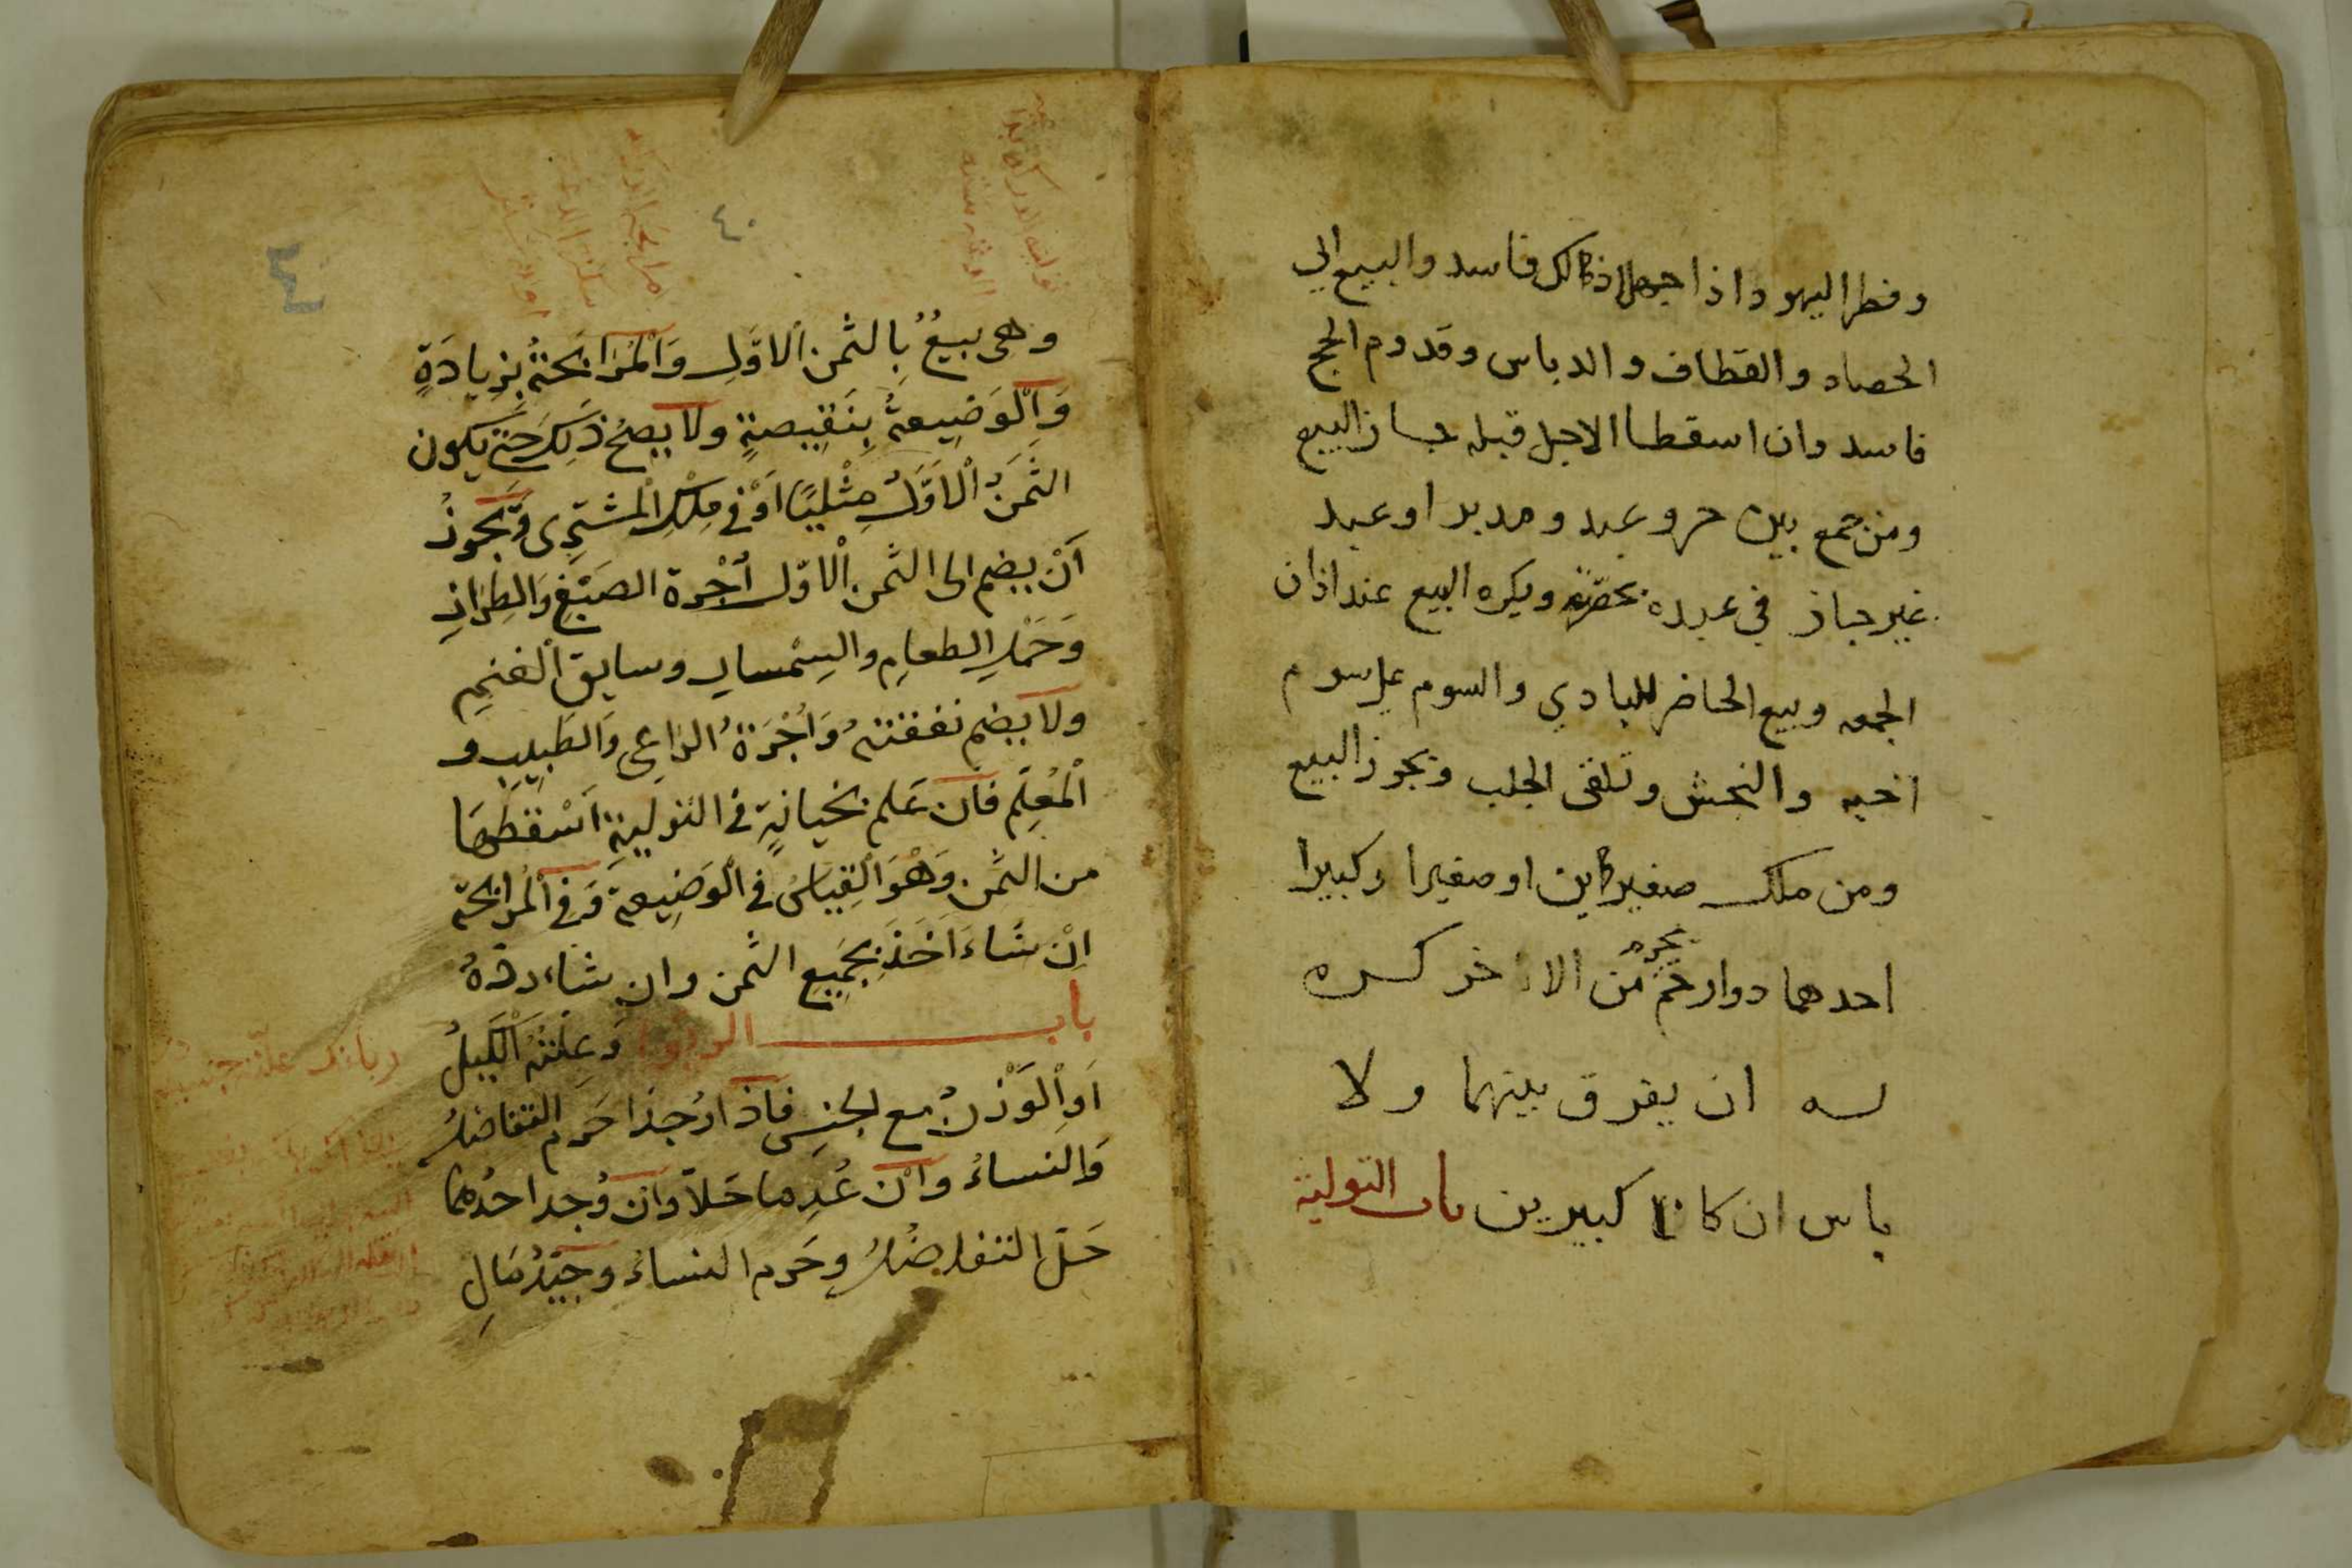 وفطر اليهود اذا جهلا ذالك فاسد والبيع الي
الحصاد والقطاف والدياس وقدوم الحج
فاسد وان اسقطا الاجل قبله جاز البيع
ومن جمع بين حر وعبد ومدبر او عبد
غير جاز في عبده بحصته ويكره البيع عند اذان
الجمعه وبيع الحاضر للبادي والسوم على سوم
اخيه والنجش وتلقى الجلب ويجوز البيع
ومن ملك صغيرين او صغيرا وكبيرا
احدهما ذوا رحم محرم من الاخر كره
له ان يفرق بينهما ولا
باس ان كانا كبيرين باب التولية
٤٠
وهى بيعٌ بِالثمن الاوّلِ وَالْمُرَابَحَةُ بِزِيادَةٍ
وَالْوَضِيعةُ بِنَقِيصةٍ ولا يصحُ ذَلِكَ حَتّى يكون
الثَّمَنُ الْاَوَّلُ مِثْلِيًا اَوْ فى مِلْكِ الْمشترِى وَيَجُوزُ
اَنْ يضم الى الثمن الْاوّل أُجْرة الصَبْغِ وَالطِرَازِ
وَحَمْلِ الطعامِ والسِمْسارِ وسايق الْغنمِ
ولا يضم نفقتهُ وَأُجْرَةُ الرّاعِى وَالطَبِيبِ و
الْمُعلِّم فان عَلم بخيانةٍ فى التوليةِ اَسْقطهَا
من الثمن وَهُوَ الْقِيَاسُ فى الْوَضِيعة وَفِى الْمُرابحَة
اِنْ شَاءَ اَخَذَ بِجَمِيع الثمن وان شاء ردّهُ
باب الربوا وَعِلتهُ الْكَيلُ
اَوِ الْوَزْنُ مع الجنسِ فاذا وُجدَا حَرم التفاضلُ
وَالنساءُ وَاِنْ عُدِما حَلّا وَان وُجد احدُهما
حَلّ التفاضلُ وحَرم النساءُ وجيّدُ مَالِ